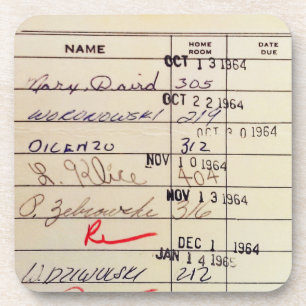 NAME HOME ROOM DATE DUE
OCT 13 1964
Mary Daird 305
OCT 22 1964
WORONOWSKI 219
OCT 30 1964
DICENZO 312
NOV 10 1964
L. Klice 404
NOV 13 1964
P. Zebrowski 316
Re
DEC 1 1964
JAN 14 1965
W. DZIWULSKI 212